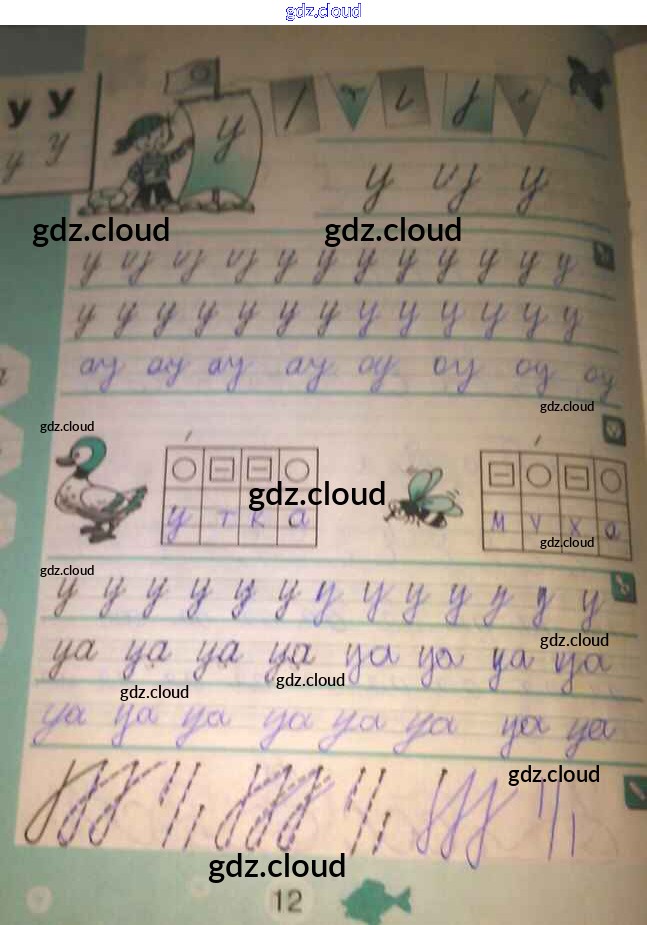 gdz.cloud
у У
у У
у
у у у
gdz.cloud gdz.cloud
у у у у у у у у у у у у у
у у у у у у у у у у у у у
ау ау ау ау оу оу оу оу
gdz.cloud
gdz.cloud
gdz.cloud
у т к а
м у х а
gdz.cloud
gdz.cloud
у у у у у у у у у у у у у
gdz.cloud
уа уа уа уа уа уа уа уа
gdz.cloud
gdz.cloud
уа уа уа уа уа уа уа уа
gdz.cloud
gdz.cloud
12